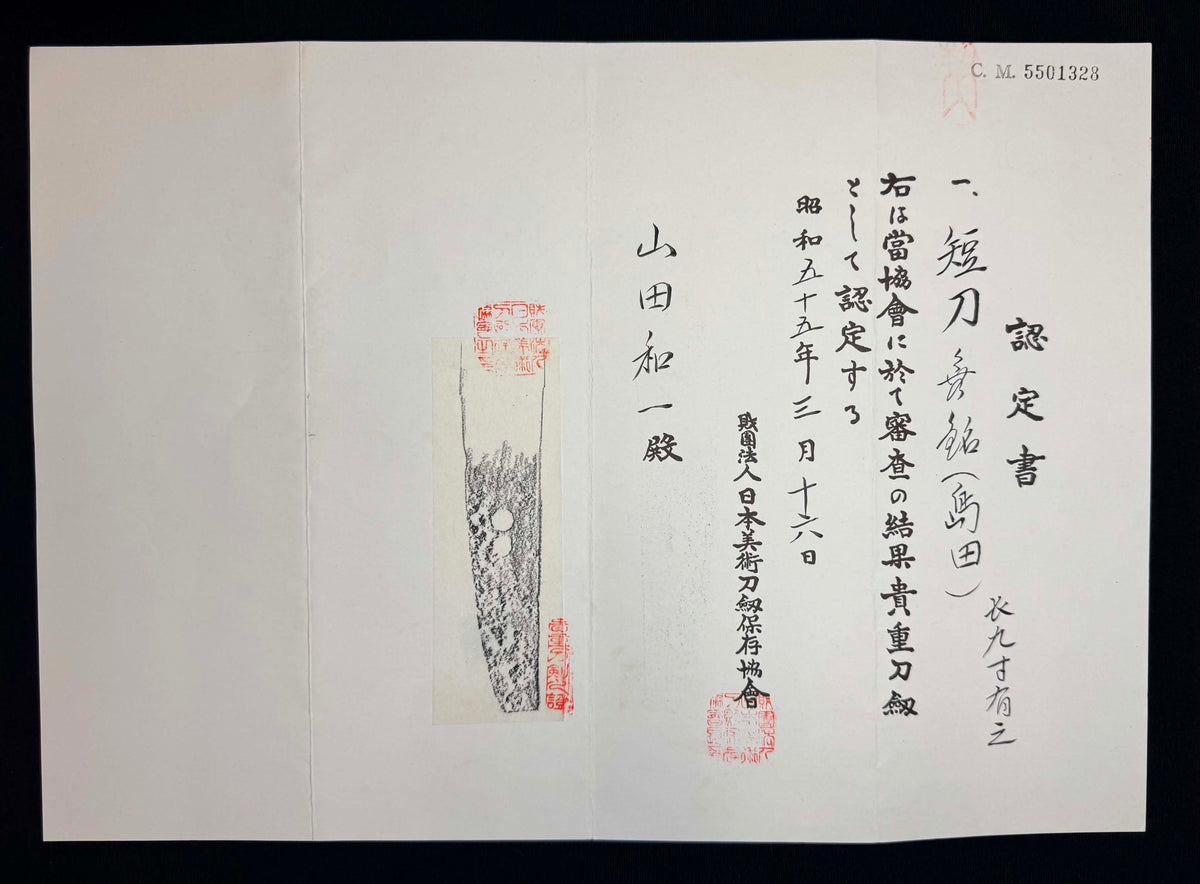 C. M. 5501328
認定書
一、短刀 無銘(島田)
长九寸有之
右は當協會に於て審査の結果貴重刀劔
として認定する
昭和五十五年三月十六日
財團法人日本美術刀劔保存協會
山田和一殿